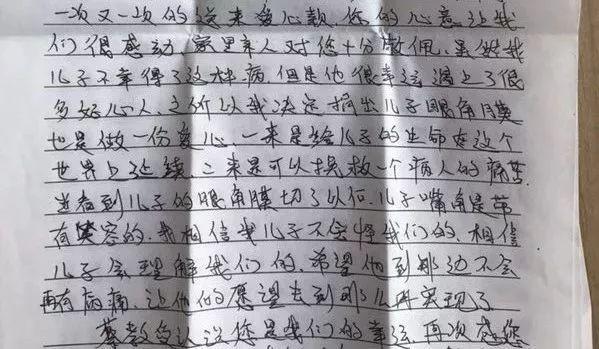 一次又一次的送来爱心款,您的心意让我
们很感动,家里亲人对您十分敬佩,虽然我
儿子不幸得了这种病,但是他很幸运遇上了很
多好心人,之所以我决定捐出儿子眼角膜
也是做一份爱心,一来是给儿子的生命在这个
世界上延续,二来是可以拯救一个病人的痛苦
当看到儿子的眼角膜切了以后,儿子嘴角是带
有笑容的,我相信我儿子不会怪我们的,相信
儿子会理解我们的,希望他到那边不会
再有病痛,让他的愿望去到那儿再实现了
蔡教伯认识您是我们的幸运,再次感您